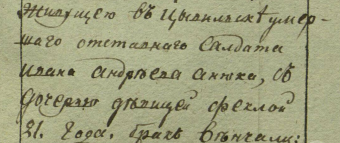 Живущею въ Цывильскѣ умер-
шаго отставнаго Салдата
ивана андрѣева анюка, съ
дочерью дѣвицей феклой
21. года. бракъ вѣнчали: